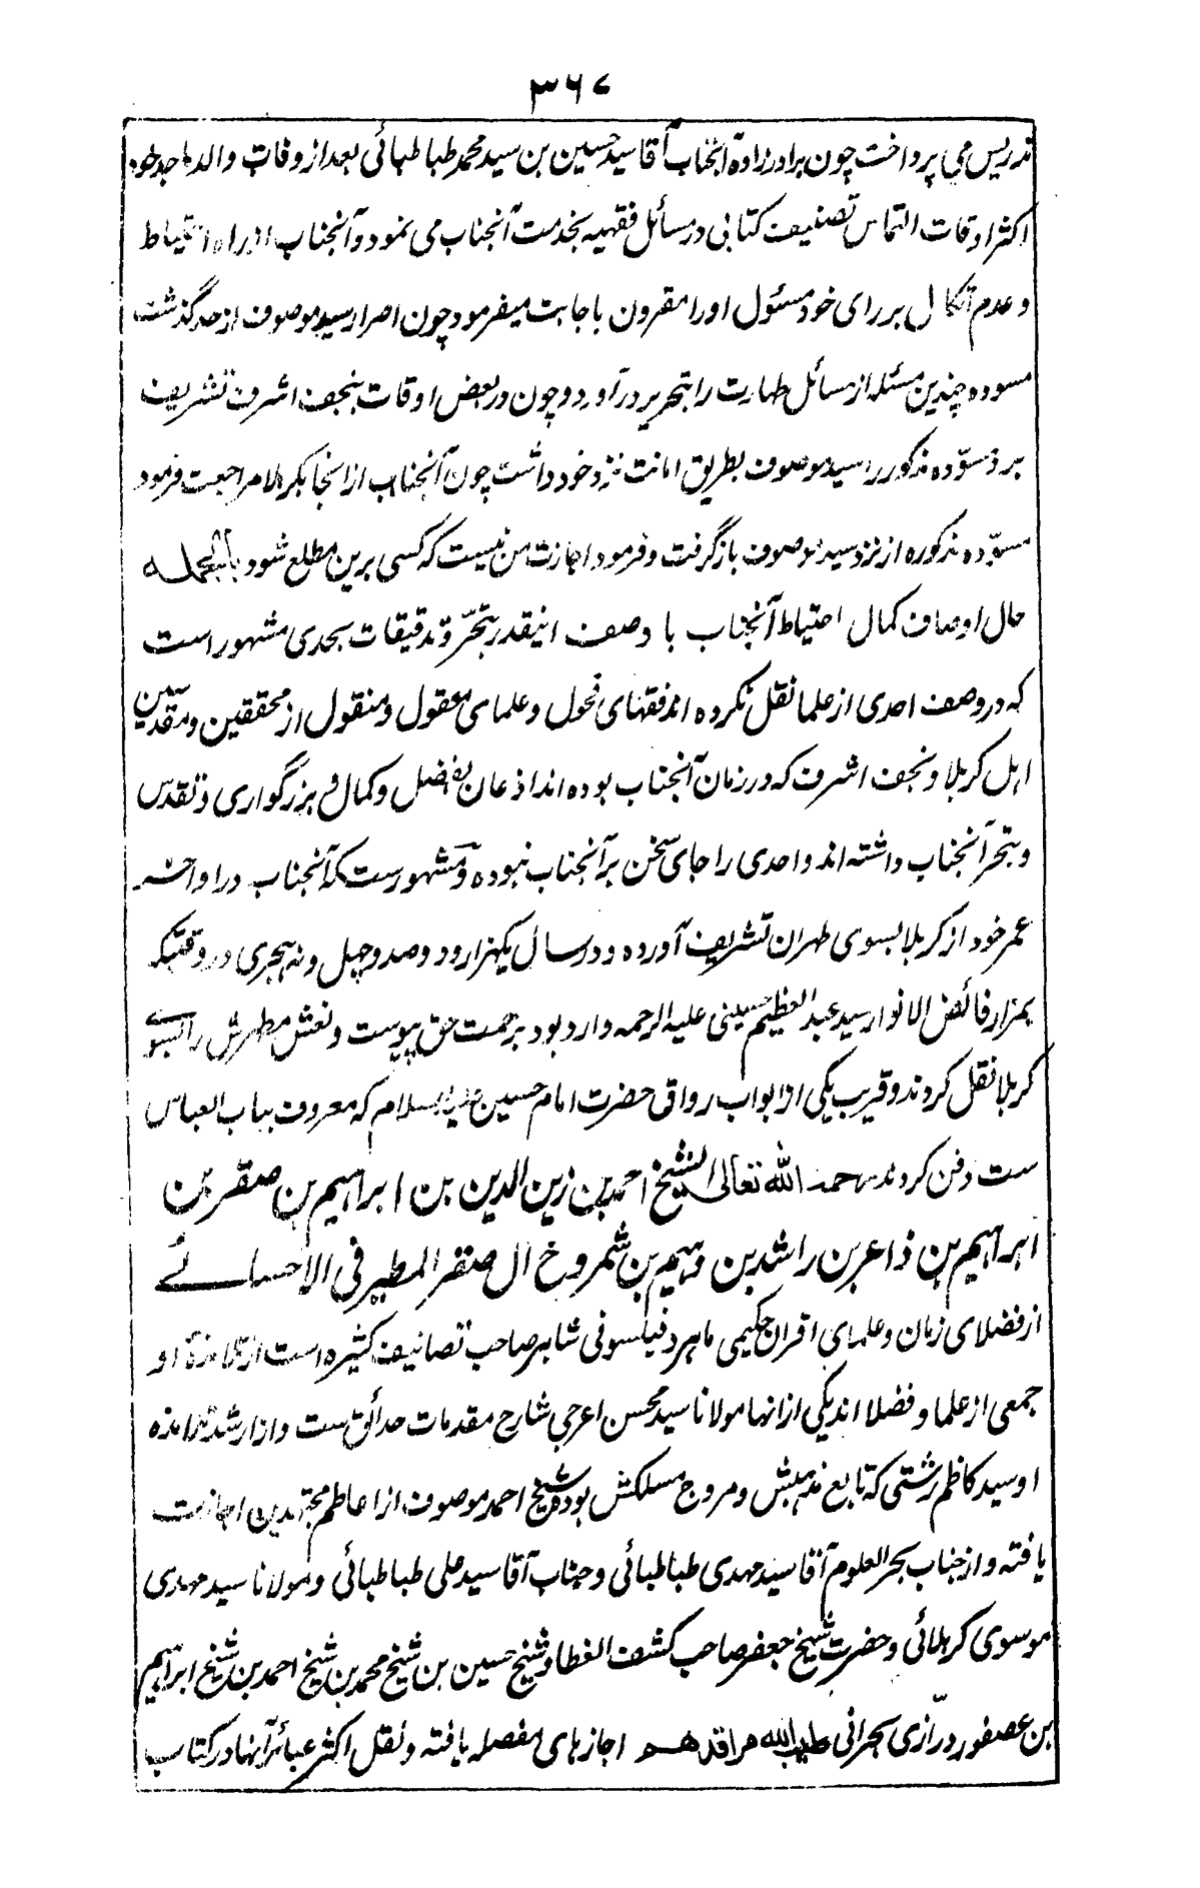 ۳۶۷
تدریس می پرداخت چون برادرزادهٔ آنجناب آقا سید حسین بن سید محمد طباطبائی بعد از وفات والد ماجد خود
اکثر اوقات التماس تصنیف کتابی در مسائل فقهیه بخدمت آنجناب می نمود و آنجناب از راه احتیاط
و عدم اتکال بر رای خود مسئول او را مقرون باجابت میفرمود چون اصرار سید موصوف از حد گذشت
مسوده چندین مسئله از مسائل طهارت را بتحریر درآورد و چون در بعض اوقات بنجف اشرف تشریف
برد مسوّده مذکور را سید موصوف بطریق امانت نزد خود داشت چون آنجناب از انجا بکربلا مراجعت فرمود
مسوّده مذکوره از نزد سید موصوف بازگرفت و فرمود اجازت من نیست که کسی برین مطلع شود بالجمله
حال اوصاف کمال احتیاط آنجناب با وصف اینقدر تبحّر و تدقیقات بحدی مشهور است
که در وصف احدی از علما نقل نکرده اند فقهای فحول و علمای معقول و منقول از محققین و مقدسین
اهل کربلا و نجف اشرف که در زمان آنجناب بوده اند اذعان بفضل و کمال و بزرگواری و تقدس
و تبحر آنجناب داشته اند و احدی را جای سخن بر آنجناب نبوده و مشهورست که آنجناب در اواخر
عمر خود از کربلا بسوی طهران تشریف آورده و در سال یکهزار و دوصد و چهل و نه هجری در وقتیکه
بمزار فائض الانوار سید عبد العظیم حسینی علیه الرحمه وارد بود برحمت حق پیوست و نعش مطهرش را بسوی
کربلا نقل کردند و قریب یکی از ابواب رواق حضرت امام حسین علیه السلام که معروف بباب العباس
ست دفن کردند رحمه الله تعالی الشیخ احمد بن زین الدین بن ابراهیم بن صقر بن
ابراهیم بن داغر بن راشد بن دهیم بن شمروخ ال صقر المطیرفی الاحسائے
از فضلای زمان و علمای اقران حکیمی ماهر و فیلسوفی شاهر صاحب تصانیف کثیره است از تلامذهٔ او
جمعی از علما و فضلا اند یکی ازانها مولانا سید محسن اعرجی شارح مقدمات حدائق ست و از ارشد تلامذه
او سید کاظم رشتی که تابع مذهبش و مروج مسلکش بوده شیخ احمد موصوف از اعاظم مجتهدین اجازت
یافته و از جناب بحر العلوم آقا سید مهدی طباطبائی و جناب آقا سید علی طباطبائی و مولانا سید مهدی
موسوی کربلائی و حضرت شیخ جعفر صاحب کشف الغطا و شیخ حسین بن شیخ محمد بن شیخ احمد بن شیخ ابراهیم
بن عصفور درّازی بحرانی طیب الله مراقدهم اجازهای مفصله یافته و نقل اکثر عبائر آنها در کتاب